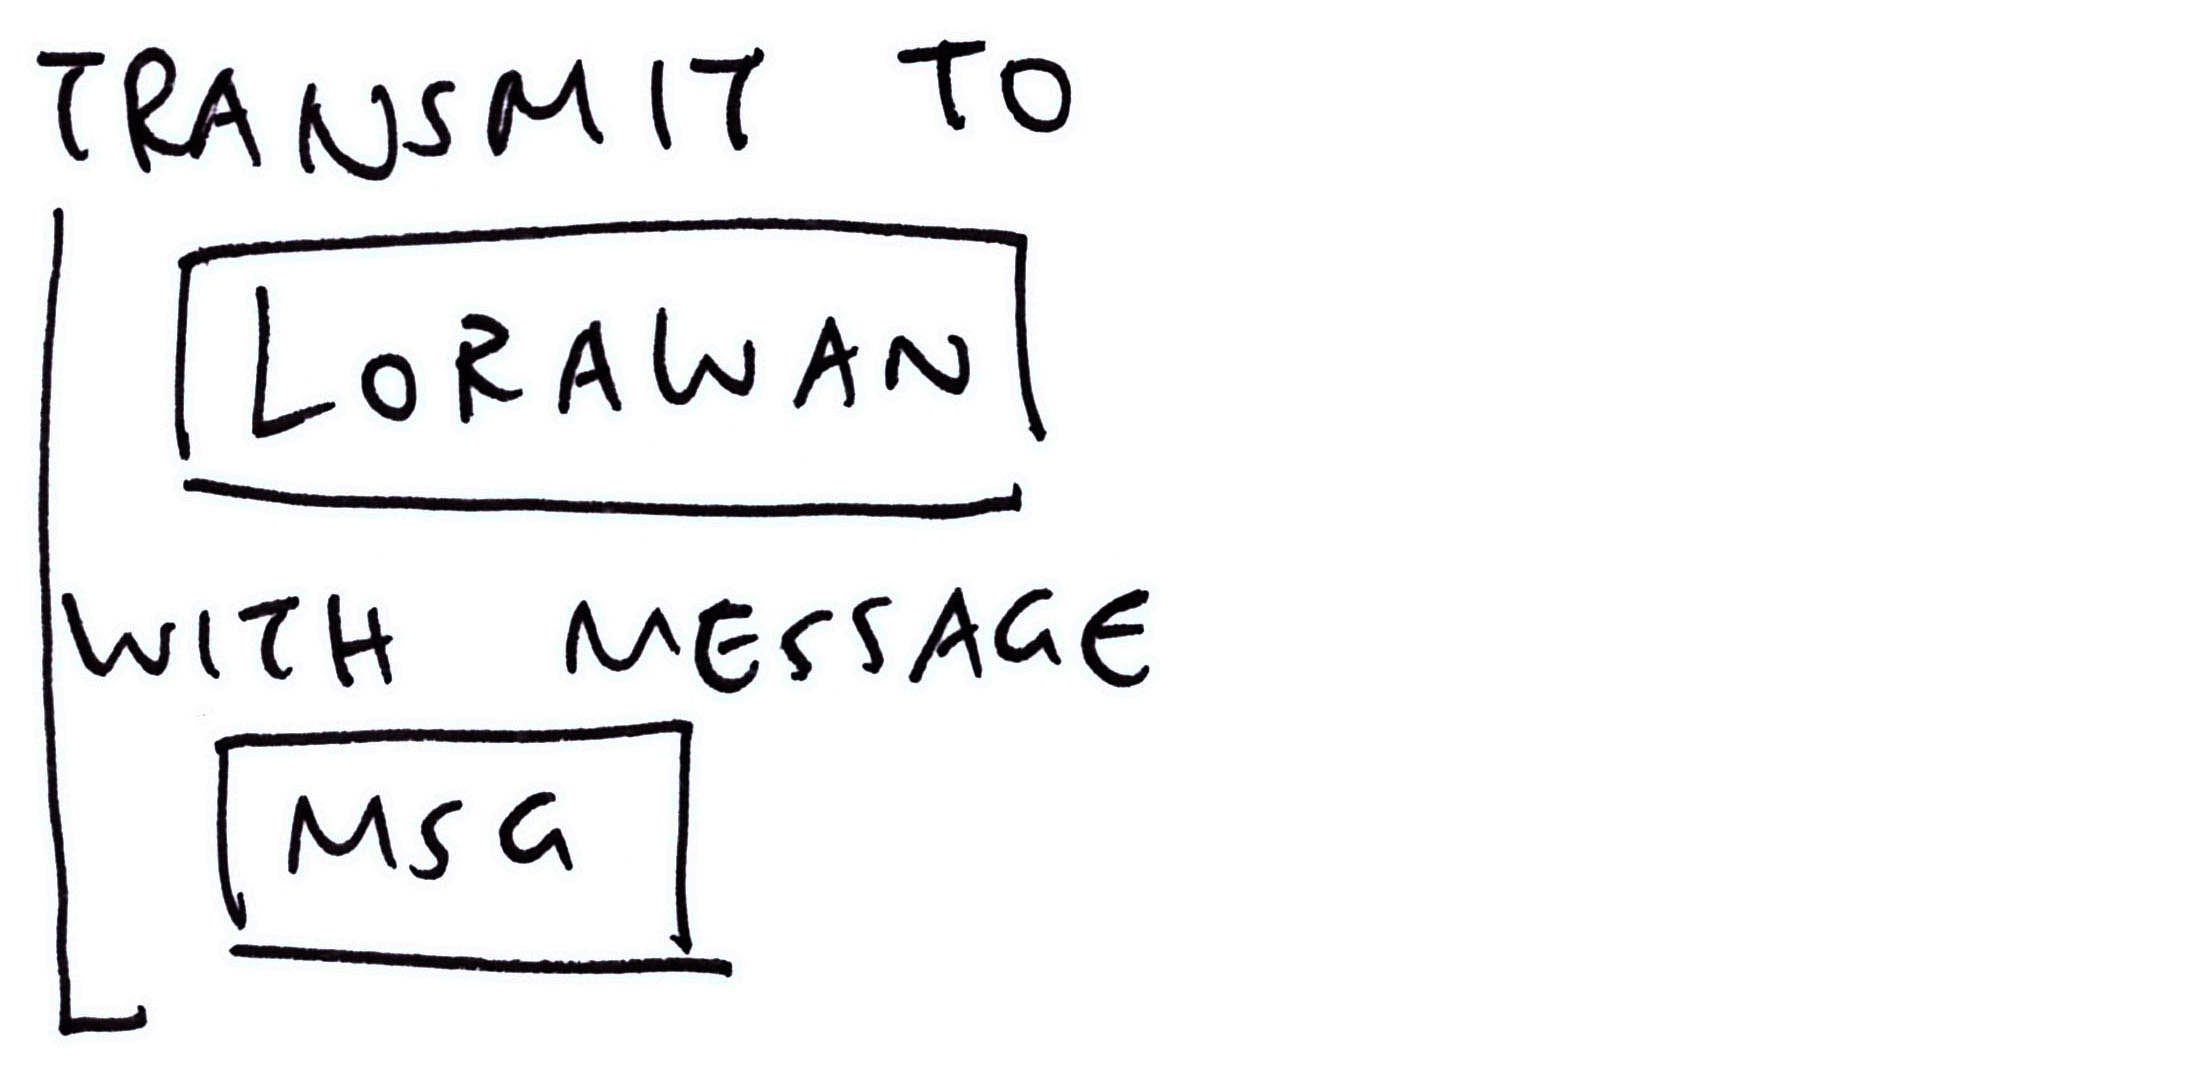 TRANSMIT TO
LORAWAN
WITH MESSAGE
MSG